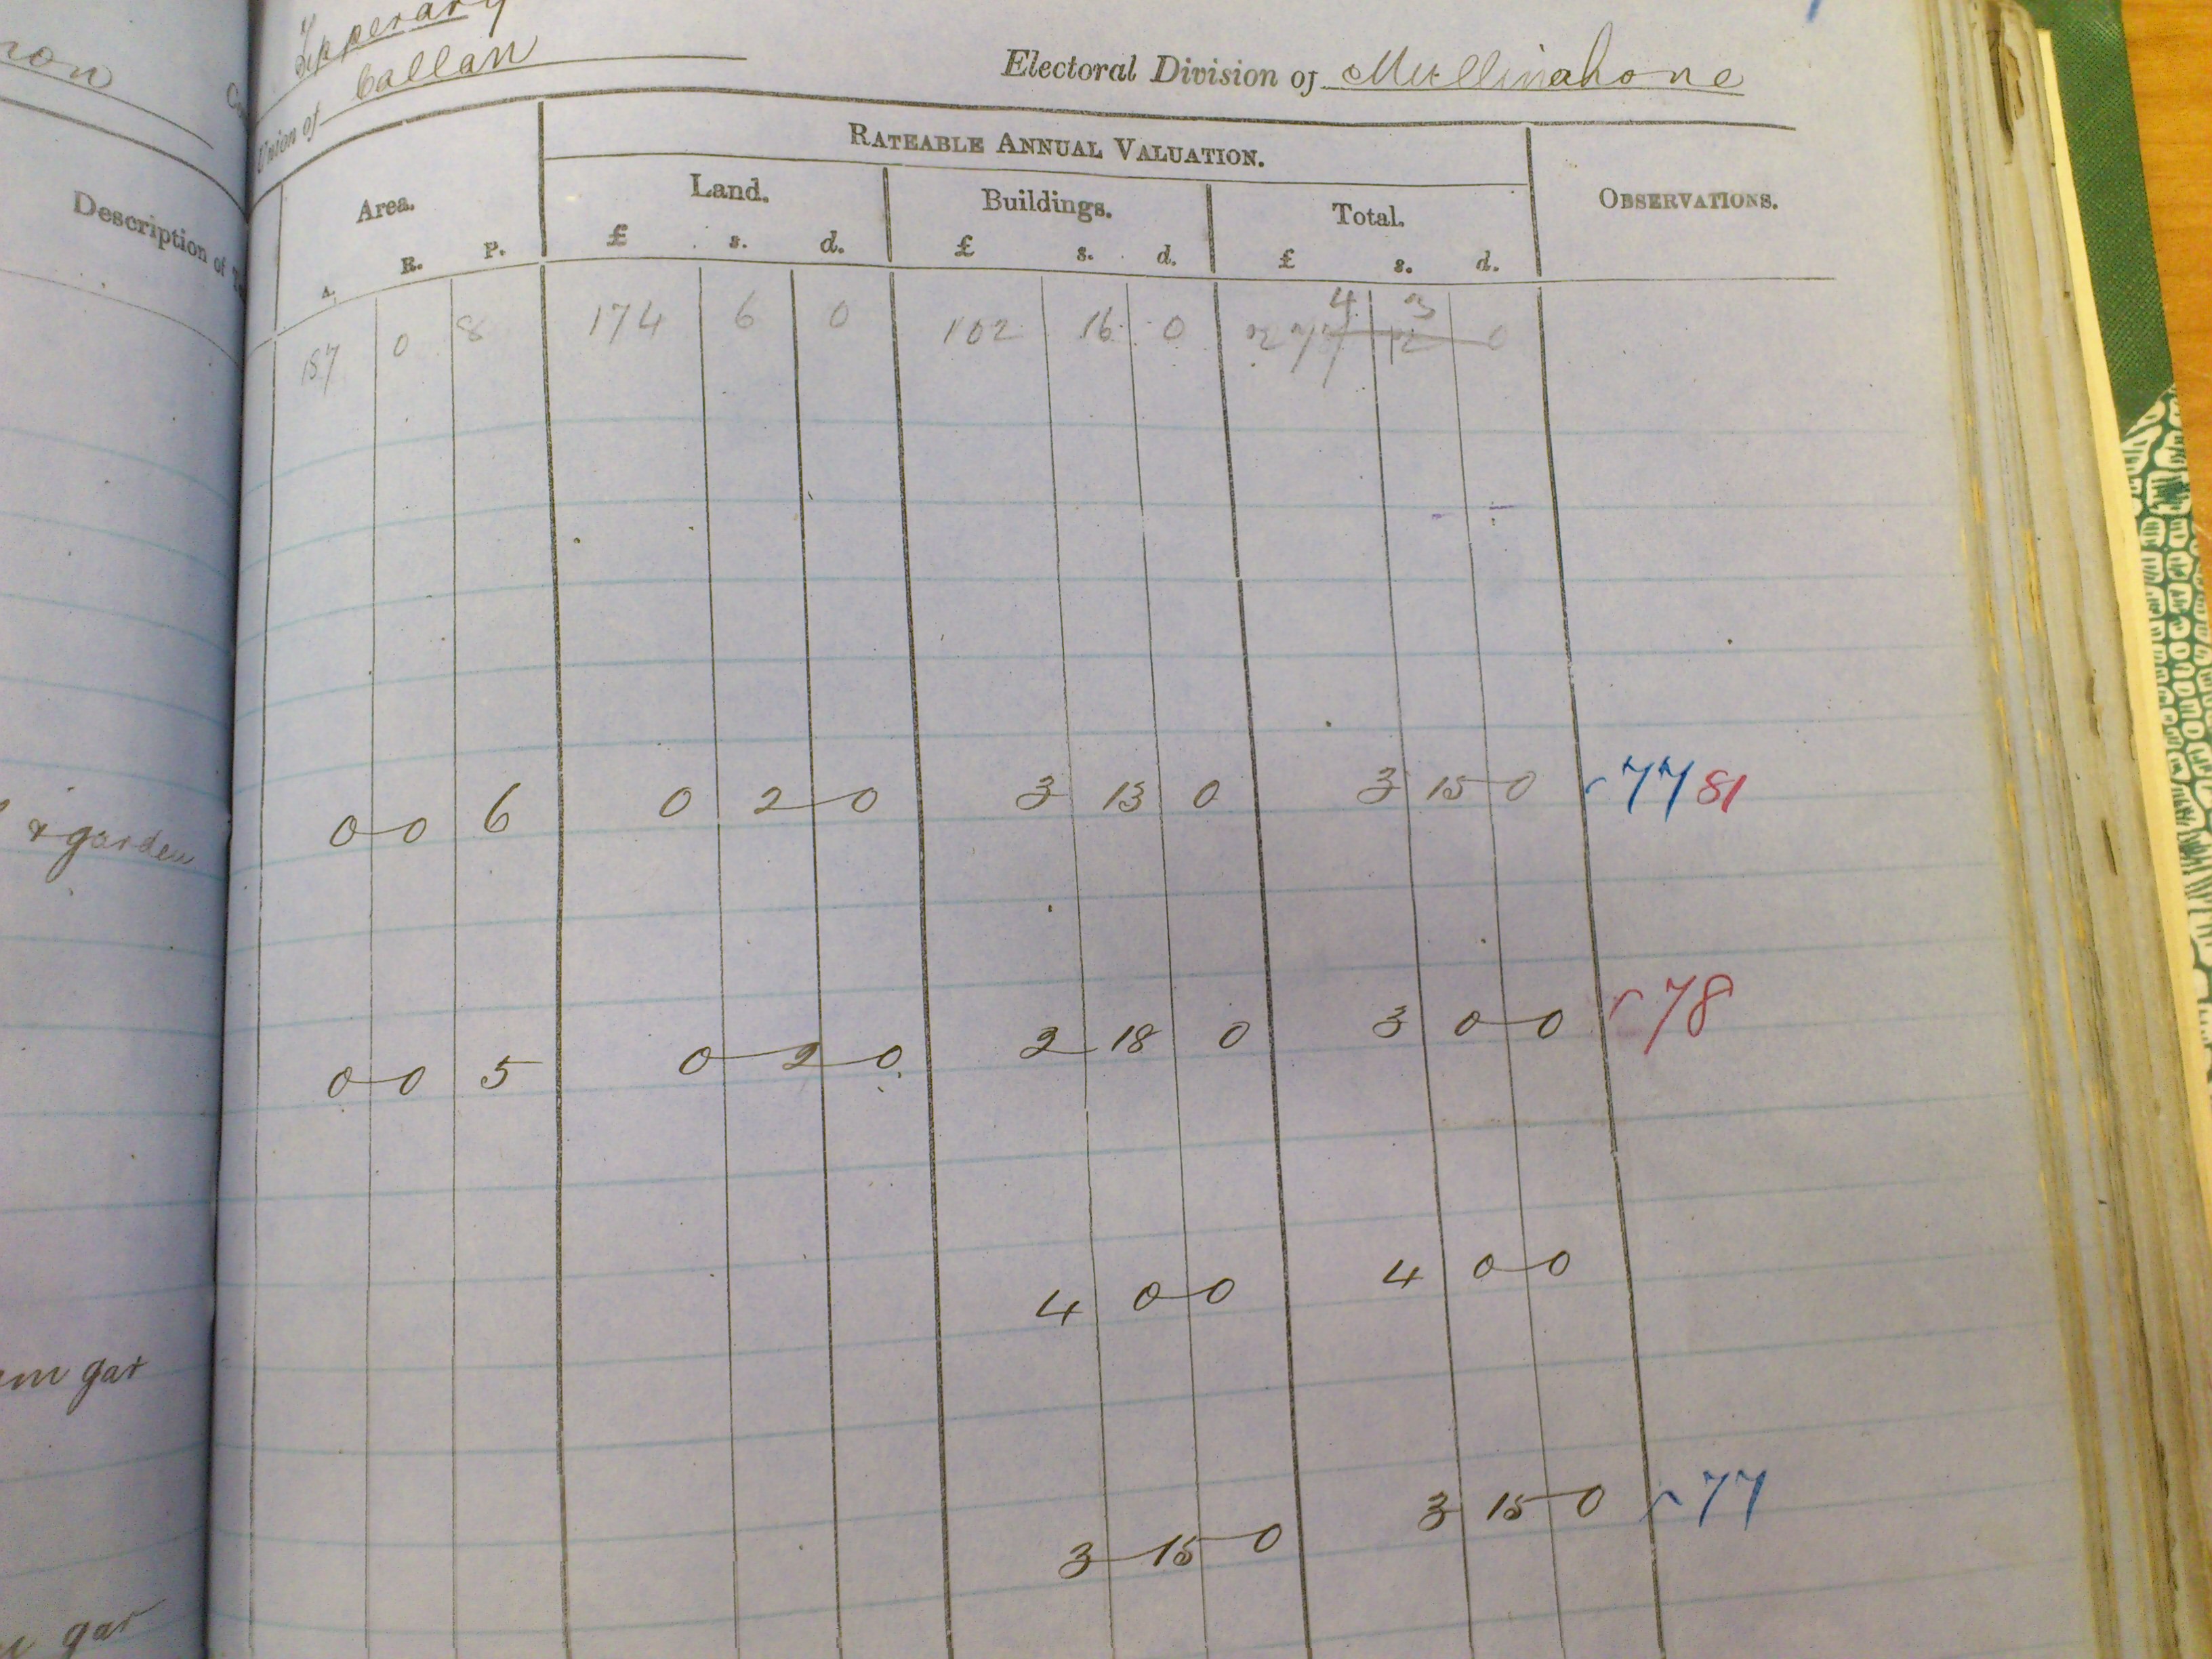 Tipperary
Union of Callan
Electoral Division of Mullinahone
Description of
Area.
RATEABLE ANNUAL VALUATION.
OBSERVATIONS.
Land. Buildings. Total.
A. R. P. £ s. d. £ s. d. £ s. d.
4 3
187 0 8 174 6 0 102 16 0 277 12 0
& garden 0 0 6 0 2 0 3 13 0 3 15 0 77 81
0 0 5 0 2 0 2 18 0 3 0 0 78
4 0 0 4 0 0
gar
3 15 0 3 15 0 77
gar